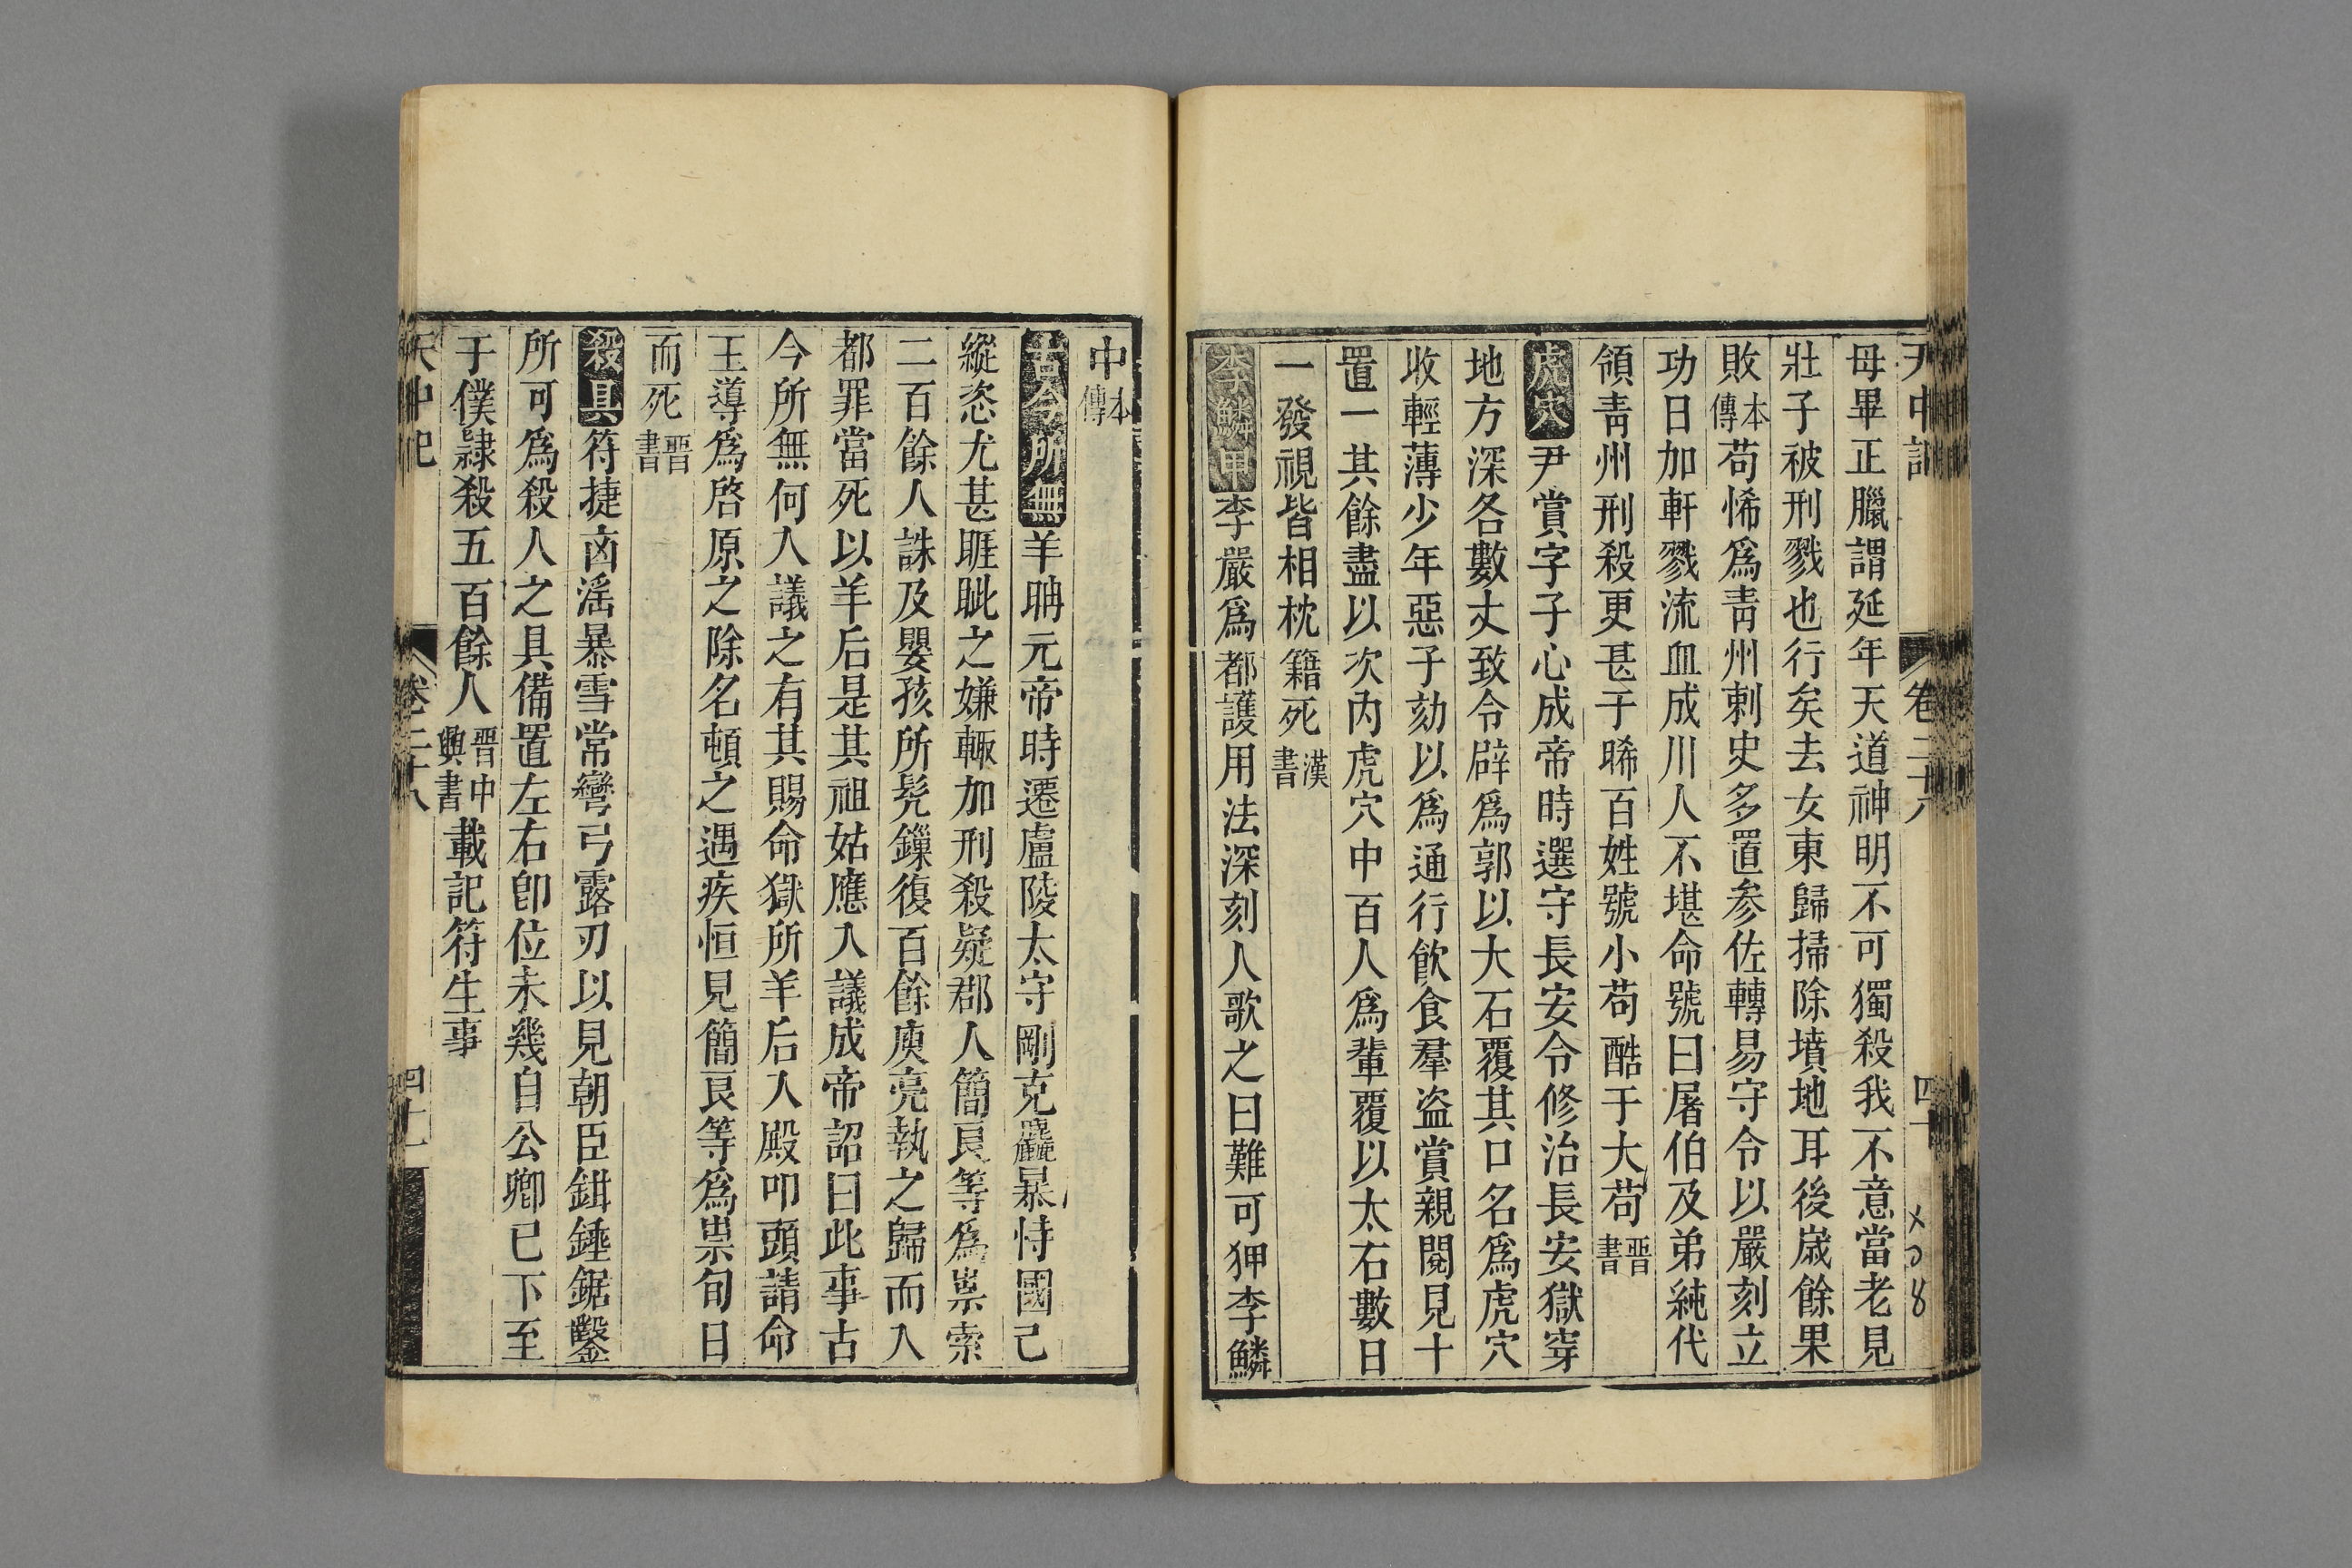 天中記
卷二十八
四十
×28
母畢正臘謂延年天道神明不可獨殺我不意當老見
壯子被刑戮也行矣去女東歸掃除墳地耳後歲餘果
敗本傳苟悕爲青州剌史多置参佐轉易守令以嚴刻立
功日加軒戮流血成川人不堪命號曰屠伯及弟純代
領青州刑殺更甚于晞百姓號小苟酷于大苟晋書
虎穴尹賞字子心成帝時選守長安令修治長安獄穿
地方深各數丈致令辟爲郭以大石覆其口名爲虎穴
收輕薄少年惡子劾以爲通行飲食羣盗賞親閱見十
置一其餘盡以次內虎穴中百人爲輩覆以太石數日
一發視皆相枕籍死漢書
李鱗甲李嚴爲都護用法深刻人歌之曰難可狎李鱗
中本傳
古今所無羊聃元帝時遷廬陵太守剛克麤暴恃國己
縱恣尤甚睚眦之嫌輙加刑殺疑郡人簡良等爲祟索
二百餘人誅及嬰孩所髠鏁復百餘庾亮執之歸而入
都罪當死以羊后是其祖姑應入議成帝詔曰此事古
今所無何人議之有其賜命獄所羊后入殿叩頭請命
王導爲啓原之除名頓之遇疾恒見簡良等爲祟旬日
而死晋書
殺具符捷凶滛暴雪常彎弓露刃以見朝臣鉗錘鋸鑿
所可爲殺人之具備置左右卽位未幾自公卿已下至
于僕隷殺五百餘人晋中興書載記符生事
天中記
卷二十八
四十一